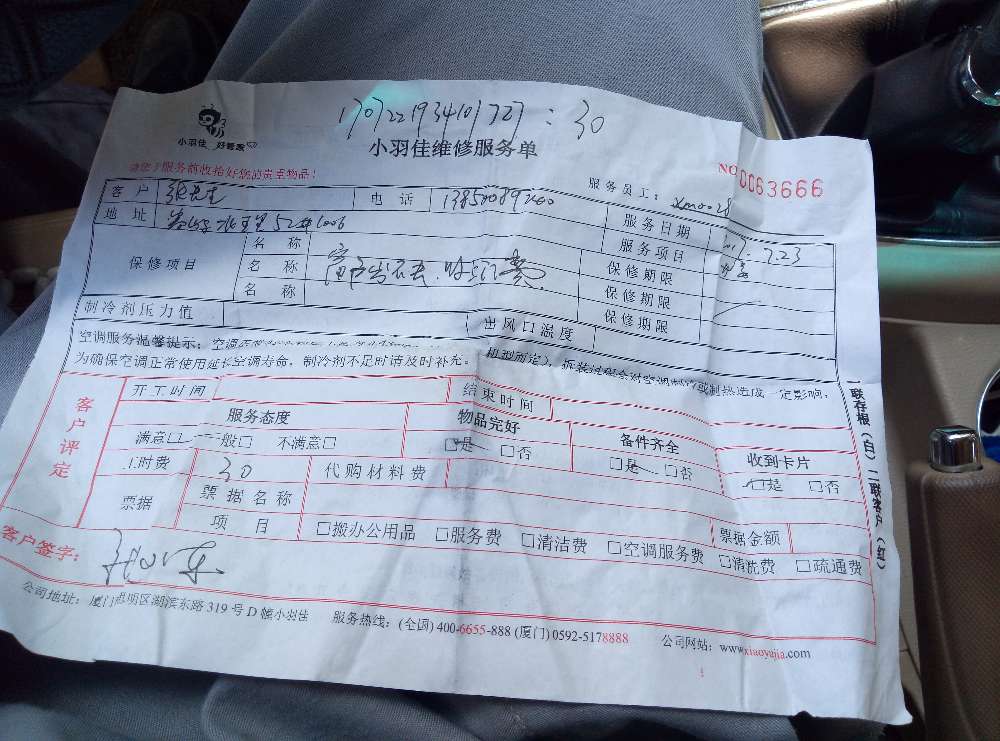 小羽佳 好管家
170722193410727 : 30
小羽佳维修服务单
NO 0063666
请您于服务前收拾好您的贵重物品!
服务员工: xm0028
客户 张先生 电话 服务日期 7.23
地址 52# 1006 服务项目
保修项目 名称 保修期限
名称 保修期限
名称 保修期限
制冷剂压力值 出风口温度
空调服务温馨提示: 拆装过程会对空调制冷或制热造成一定影响,
为确保空调正常使用延长空调寿命,制冷剂不足时请及时补充。
客户评定
开工时间 结束时间
服务态度 物品完好 备件齐全 收到卡片
满意□ 一般□ 不满意□ □是 □否 □是 □否 □是 □否
工时费 30 代购材料费
票据 票据名称 票据金额
项目 □搬办公用品 □服务费 □清洁费 □空调服务费 □清洗费 □疏通费
客户签字:
一联存根(白) 二联客户(红)
公司地址: 厦门思明区湖滨东路 319 号 D 幢小羽佳 服务热线: (全国) 400-6655-888 (厦门) 0592-5178888 公司网站: www.xiaoyujia.com